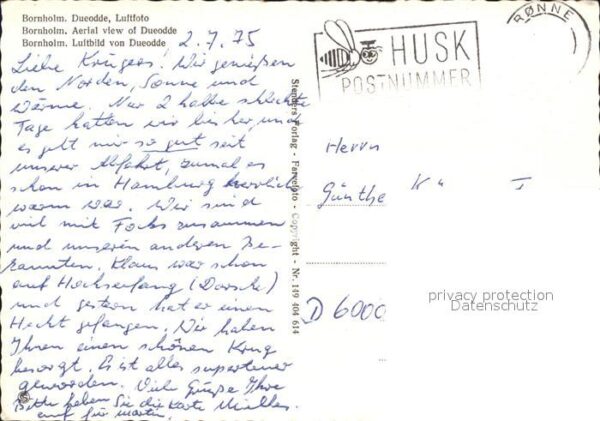 Bornholm. Dueodde, Luftfoto
Bornholm. Aerial view of Dueodde
Bornholm. Luftbild von Dueodde
2.7.75
Liebe Krügers! Wir genießen
den Norden, Sonne und
Wärme. Nur 2 halbe schlechte
Tage hatten wir bisher, und
es geht mir so gut seit
unserer Abfahrt, zumal es
schon in Hamburg herrlich
warm war. Wir sind
viel mit Fochs zusammen
und unseren anderen Be-
kannten. Klaus war schon
auf Hochseefang (Dorsche)
und gestern hat er einen
Hecht gefangen. Wir haben
Ihnen einen schönen Krug
besorgt. Es ist alles superteuer
geworden. Viele Grüße Ihre
Bitte heben Sie die Karte
auf für
Stenders Forlag - Farvefoto - Copyright - Nr. 149 404 614
RØNNE
HUSK
POSTNUMMER
Herrn
Günthe K
D 6000
privacy protection
Datenschutz